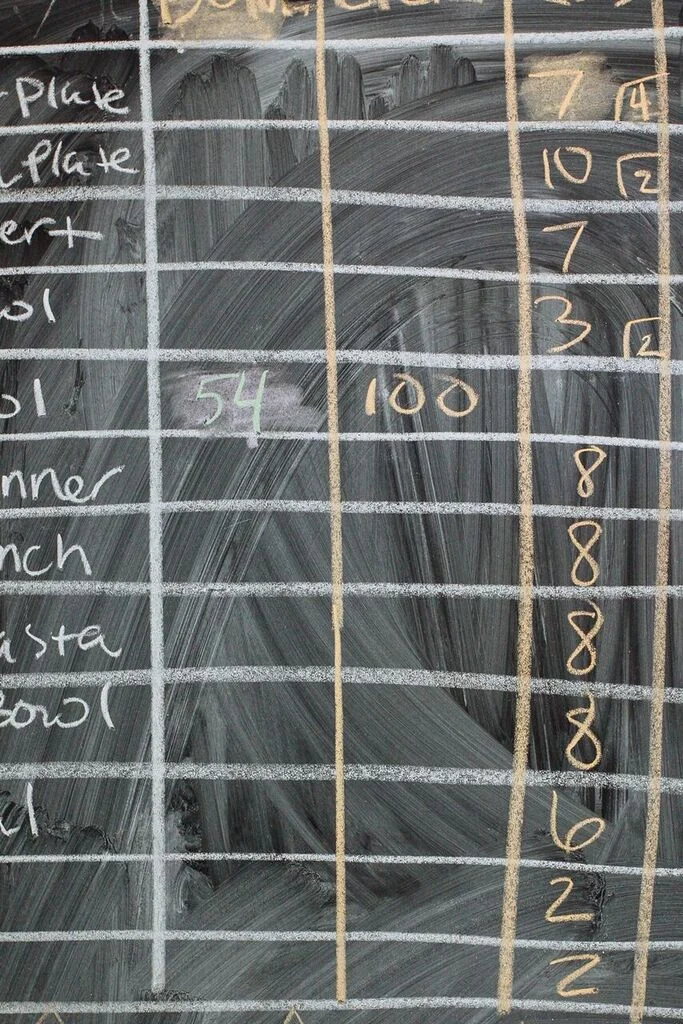 Plate 7 4
Plate 10 2
ert 7
ol 3 2
ol 54 100
nner 8
nch 8
asta 8
Bowl 8
l 6
2
2